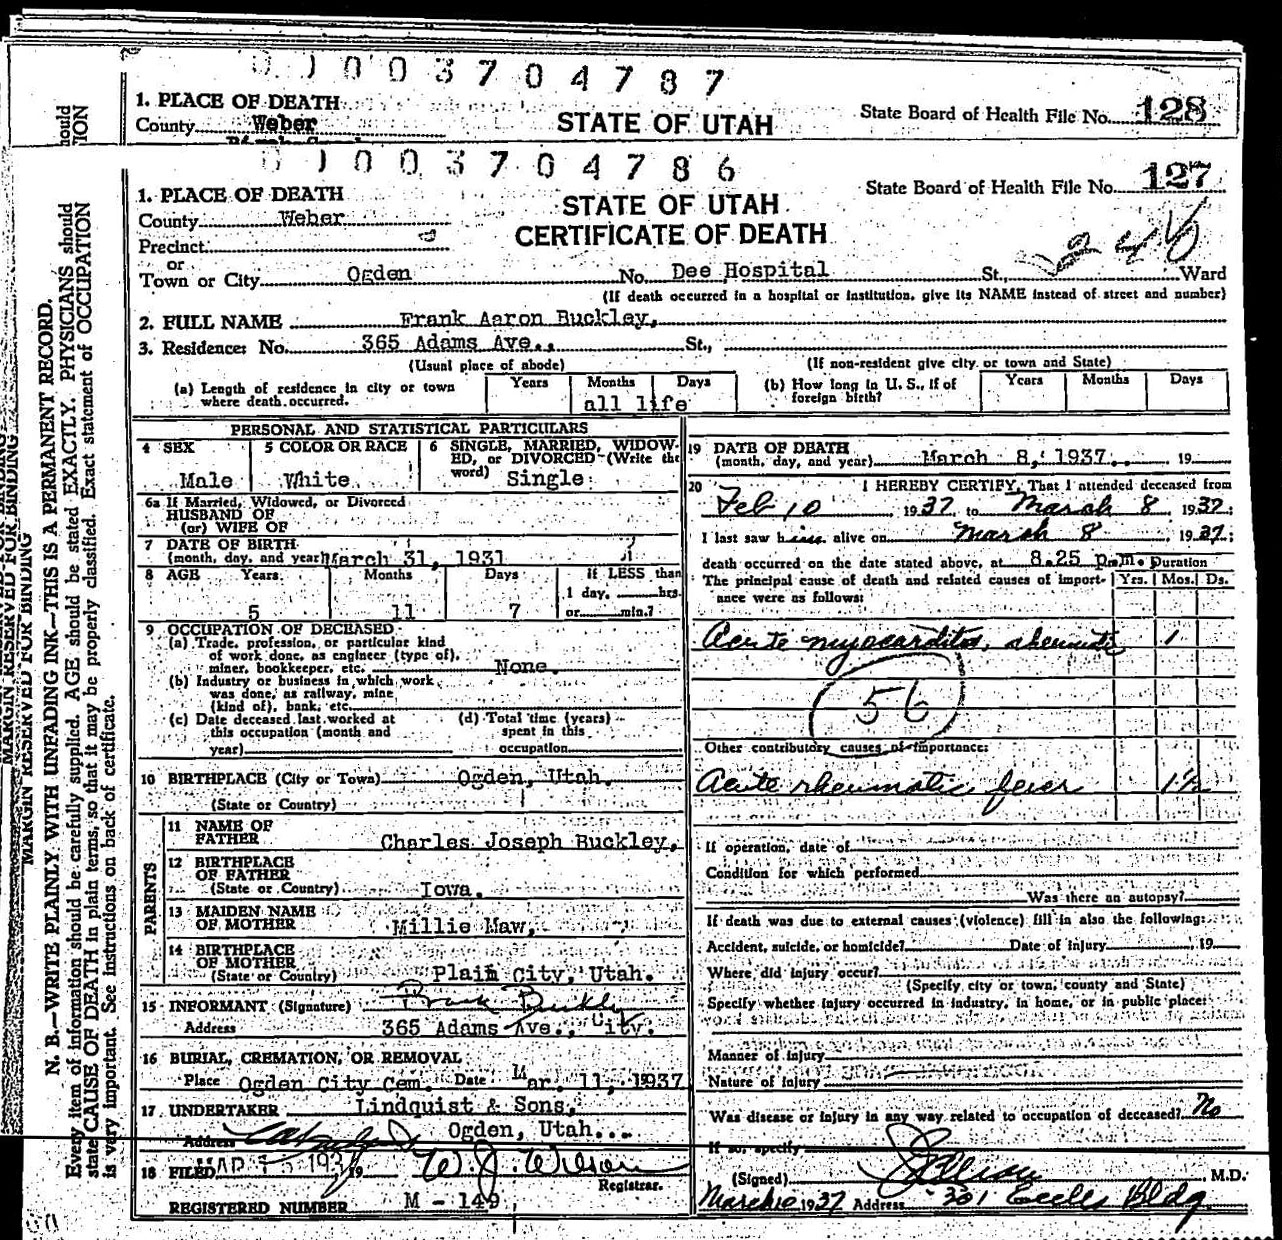 0 0 0 0 3 7 0 4 7 8 7
1. PLACE OF DEATH
County Weber
STATE OF UTAH
State Board of Health File No. 128
0 0 0 0 3 7 0 4 7 8 6
1. PLACE OF DEATH
County Weber
Precinct
or
Town or City Ogden No. Dee Hospital St., Ward
STATE OF UTAH
CERTIFICATE OF DEATH
State Board of Health File No. 127
(If death occurred in a hospital or institution, give its NAME instead of street and number)
2. FULL NAME Frank Aaron Buckley,
3. Residence: No. 365 Adams Ave., St.,
(Usual place of abode) (If non-resident give city or town and State)
(a) Length of residence in city or town where death occurred. Years Months Days
all life
(b) How long in U. S., if of foreign birth? Years Months Days
PERSONAL AND STATISTICAL PARTICULARS
4 SEX
Male
5 COLOR OR RACE
White
6 SINGLE, MARRIED, WIDOW-
ED, or DIVORCED (Write the
word) Single
6a If Married, Widowed, or Divorced
HUSBAND OF
(or) WIFE OF
7 DATE OF BIRTH
(month, day, and year) March 31, 1931
8 AGE Years Months Days If LESS than
1 day, hrs.
5 11 7 or min.?
9 OCCUPATION OF DECEASED
(a) Trade, profession, or particular kind
of work done, as engineer (type of),
miner, bookkeeper, etc. None.
(b) Industry or business in which work
was done, as railway, mine
(kind of), bank, etc.
(c) Date deceased last worked at
this occupation (month and
year)
(d) Total time (years)
spent in this
occupation
10 BIRTHPLACE (City or Town) Ogden, Utah.
(State or Country)
PARENTS
11 NAME OF
FATHER Charles Joseph Buckley,
12 BIRTHPLACE
OF FATHER
(State or Country) Iowa.
13 MAIDEN NAME
OF MOTHER Millie Maw,
14 BIRTHPLACE
OF MOTHER
(State or Country) Plain City, Utah.
15 INFORMANT (Signature) Frank Buckley
Address 365 Adams Ave., City.
16 BURIAL, CREMATION, OR REMOVAL
Place Ogden City Cem. Date Mar. 11, 1937
17 UNDERTAKER Lindquist & Sons,
Address Ogden, Utah...
18 FILED MAR 15 1937 19 W. J. Wilson
Registrar.
REGISTERED NUMBER M - 149
19 DATE OF DEATH
(month, day, and year) March 8, 1937. 19
20 I HEREBY CERTIFY, That I attended deceased from
Feb 10 1937, to March 8, 1937;
I last saw him alive on March 8, 1937;
death occurred on the date stated above, at 8.25 p.m. Duration
The principal cause of death and related causes of import-
ance were as follows: Yrs. Mos. Ds.
Acute myocarditis, rheumatic 1
56
Other contributory causes of importance:
Acute rheumatic fever 1½
If operation, date of
Condition for which performed
Was there an autopsy?
If death was due to external causes (violence) fill in also the following:
Accident, suicide, or homicide? Date of injury , 19
Where did injury occur?
(Specify city or town, county and State)
Specify whether injury occurred in industry, in home, or in public place:
Manner of injury
Nature of injury
Was disease or injury in any way related to occupation of deceased? No
If so, specify
(Signed) , M.D.
March 10 1937 Address 301 Eccles Bldg
MARGIN RESERVED FOR BINDING
N. B.—WRITE PLAINLY WITH UNFADING INK—THIS IS A PERMANENT RECORD.
Every item of information should be carefully supplied. AGE should be stated EXACTLY. PHYSICIANS should
state CAUSE OF DEATH in plain terms, so that it may be properly classified. Exact statement of OCCUPATION
is very important. See instructions on back of certificate.